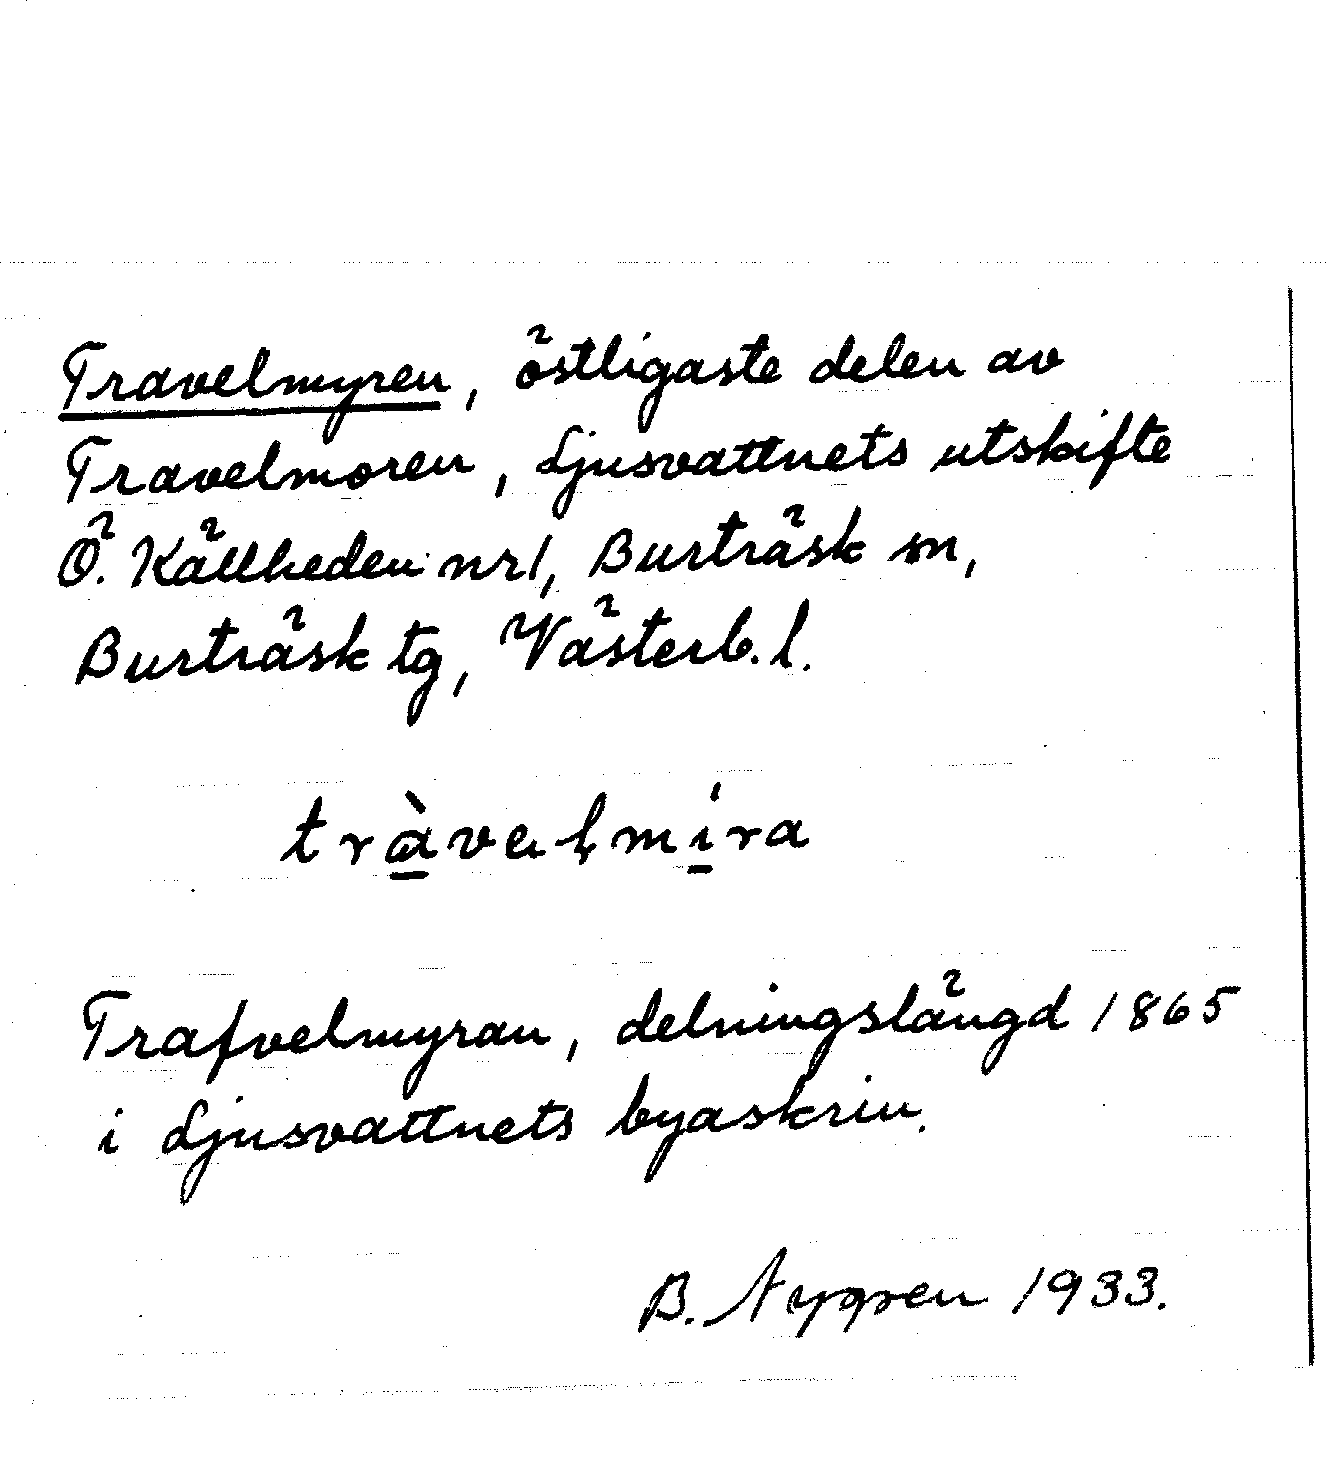 Travelmyren, östligaste delen av
Travelmoren, Ljusvattnets utskifte
Ö. Källheden nr 1, Burträsk sn,
Burträsk tg, Västerb. l.
tràvəḷmíra
Trafvelmyran, delningslängd 1865
i Ljusvattnets byaskrin.
B. Nygren 1933.